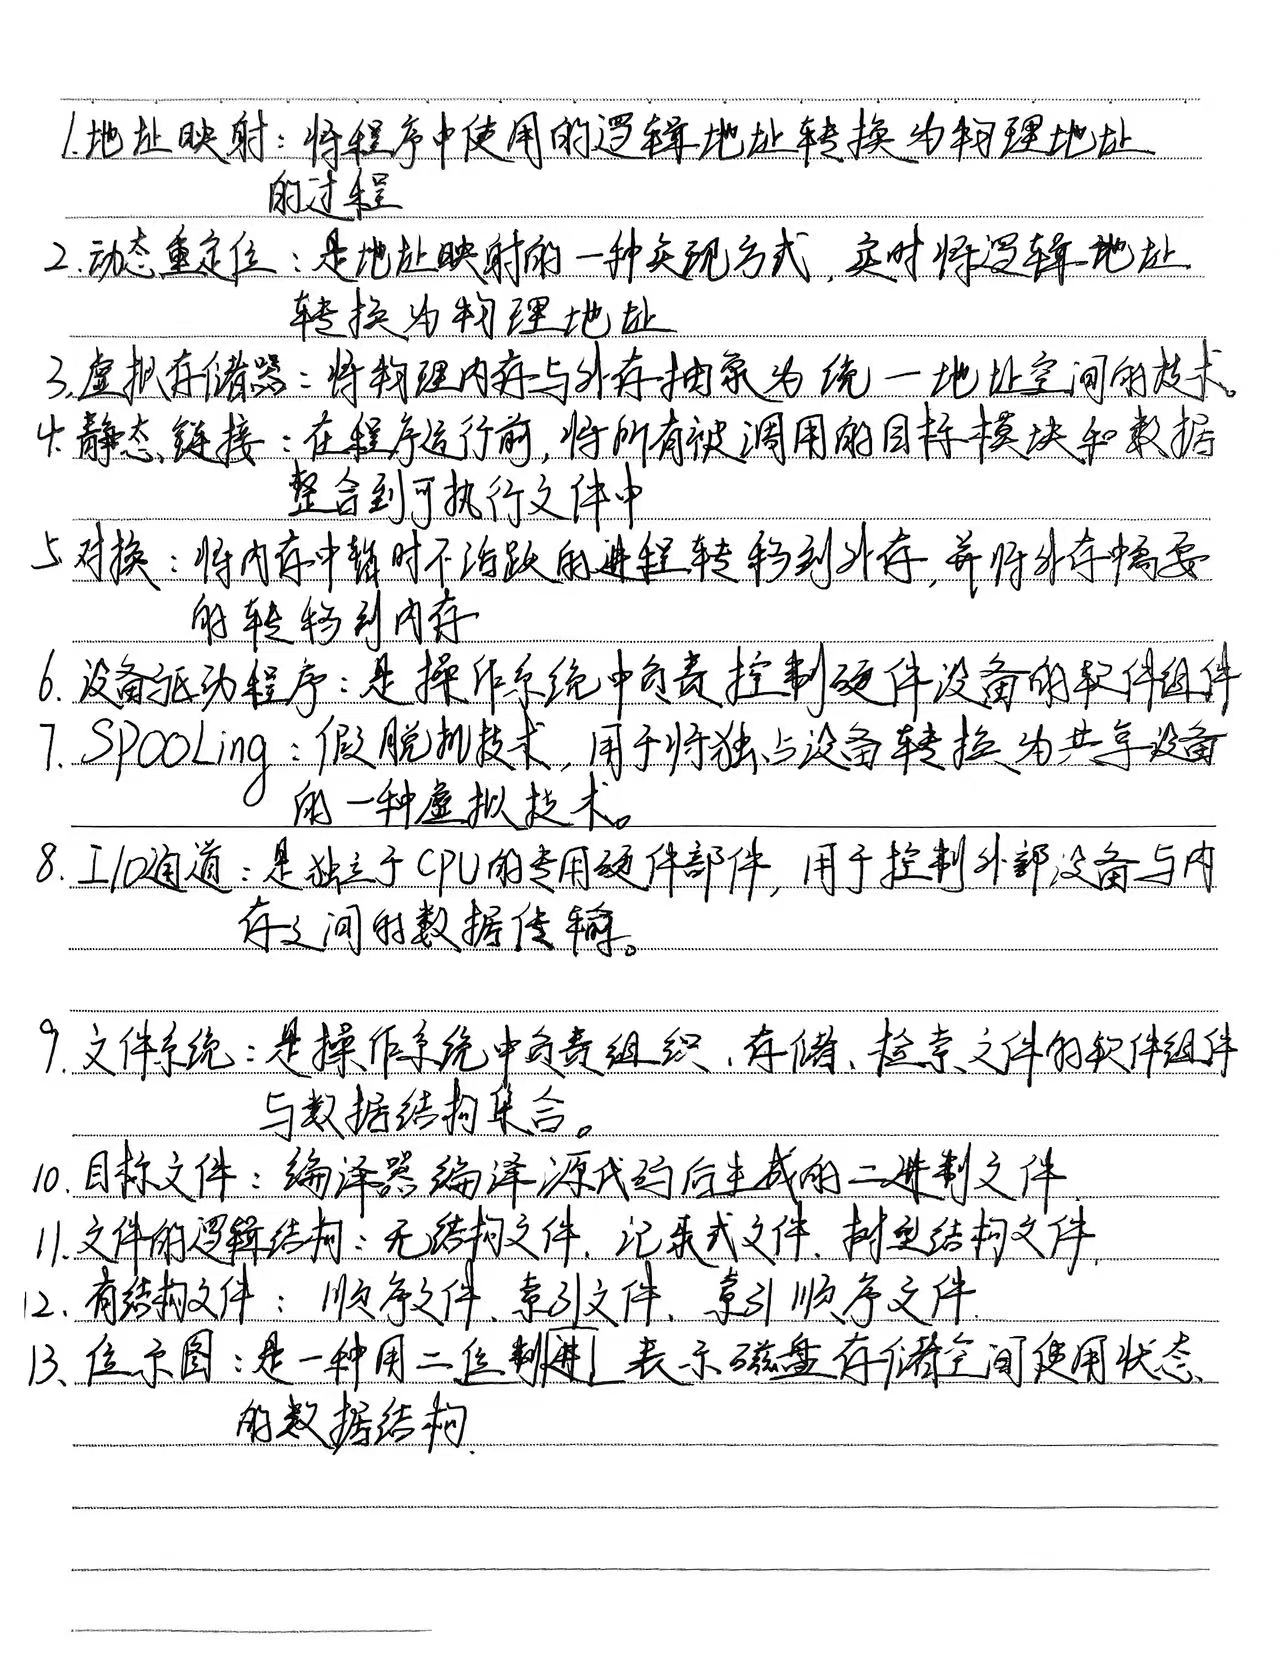 1.地址映射：将程序中使用的逻辑地址转换为物理地址
的过程
2.动态重定位：是地址映射的一种实现方式，实时将逻辑地址
转换为物理地址
3.虚拟存储器：将物理内存与外存抽象为统一地址空间的技术。
4.静态链接：在程序运行前，将所有被调用的目标模块和数据
整合到可执行文件中
5.对换：将内存中暂时不活跃的进程转移到外存，并将外存中需要
的转移到内存
6.设备驱动程序：是操作系统中负责控制硬件设备的软件组件
7.SPOOLing：假脱机技术，用于将独占设备转换为共享设备
的一种虚拟技术。
8.I/O通道：是独立于CPU的专用硬件部件，用于控制外部设备与内
存之间的数据传输。
9.文件系统：是操作系统中负责组织、存储、检索文件的软件组件
与数据结构集合。
10.目标文件：编译器编译源代码后生成的二进制文件.
11.文件的逻辑结构：无结构文件、记录式文件、树型结构文件.
12.有结构文件：顺序文件、索引文件、索引顺序文件.
13、位示图：是一种用二位制进表示磁盘存储空间使用状态
的数据结构.